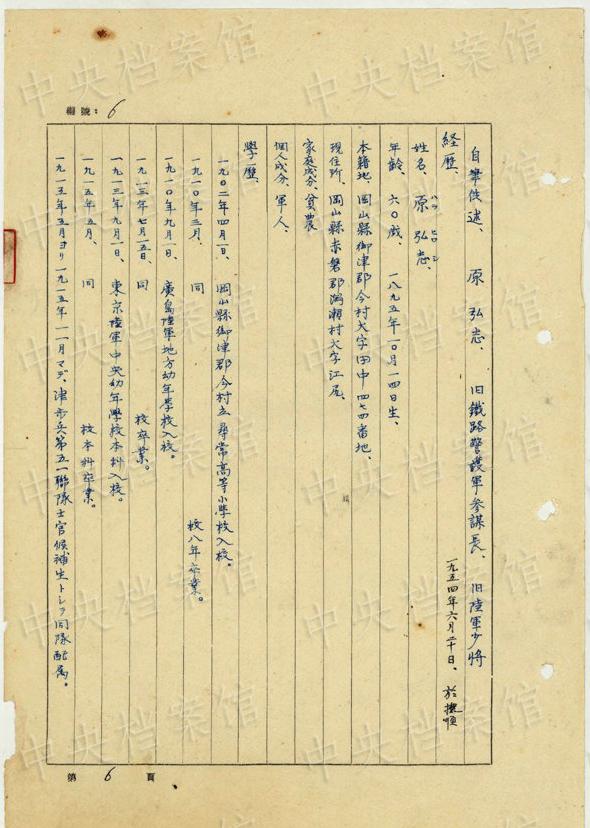 中央档案馆
編號：6
自筆供述、　原　弘志、　旧鐵路警護軍参謀長、　旧陸軍少將
一九五四年六月二十日、　於撫順
経歴、
姓名、　原　弘志、
ハラ　ヒロ　シ
年齢、　六〇歳、　一八九五年一〇月一四日生、
本籍地、岡山縣御津郡今村大字田中四七四番地、
現住所、岡山縣赤磐郡潟瀬村大字江尻、
家庭成分、貧農
個人成分、軍人、
學歴、
一九〇二年四月一日、　岡山縣御津郡今村立尋常高等小學校入校。
一九一〇年三月、　同　校八年卒業。
一九一〇年九月一日、　廣島陸軍地方幼年學校入校。
一九一三年七月一五日　同　校卒業。
一九一三年九月一日、　東京陸軍中央幼年學校本科入校。
一九一五年五月、　同　校本科卒業。
一九一五年五月ヨリ一九一五年一一月マデ、津歩兵第五一聯隊士官候補生トシテ同隊配属。
第　6　頁